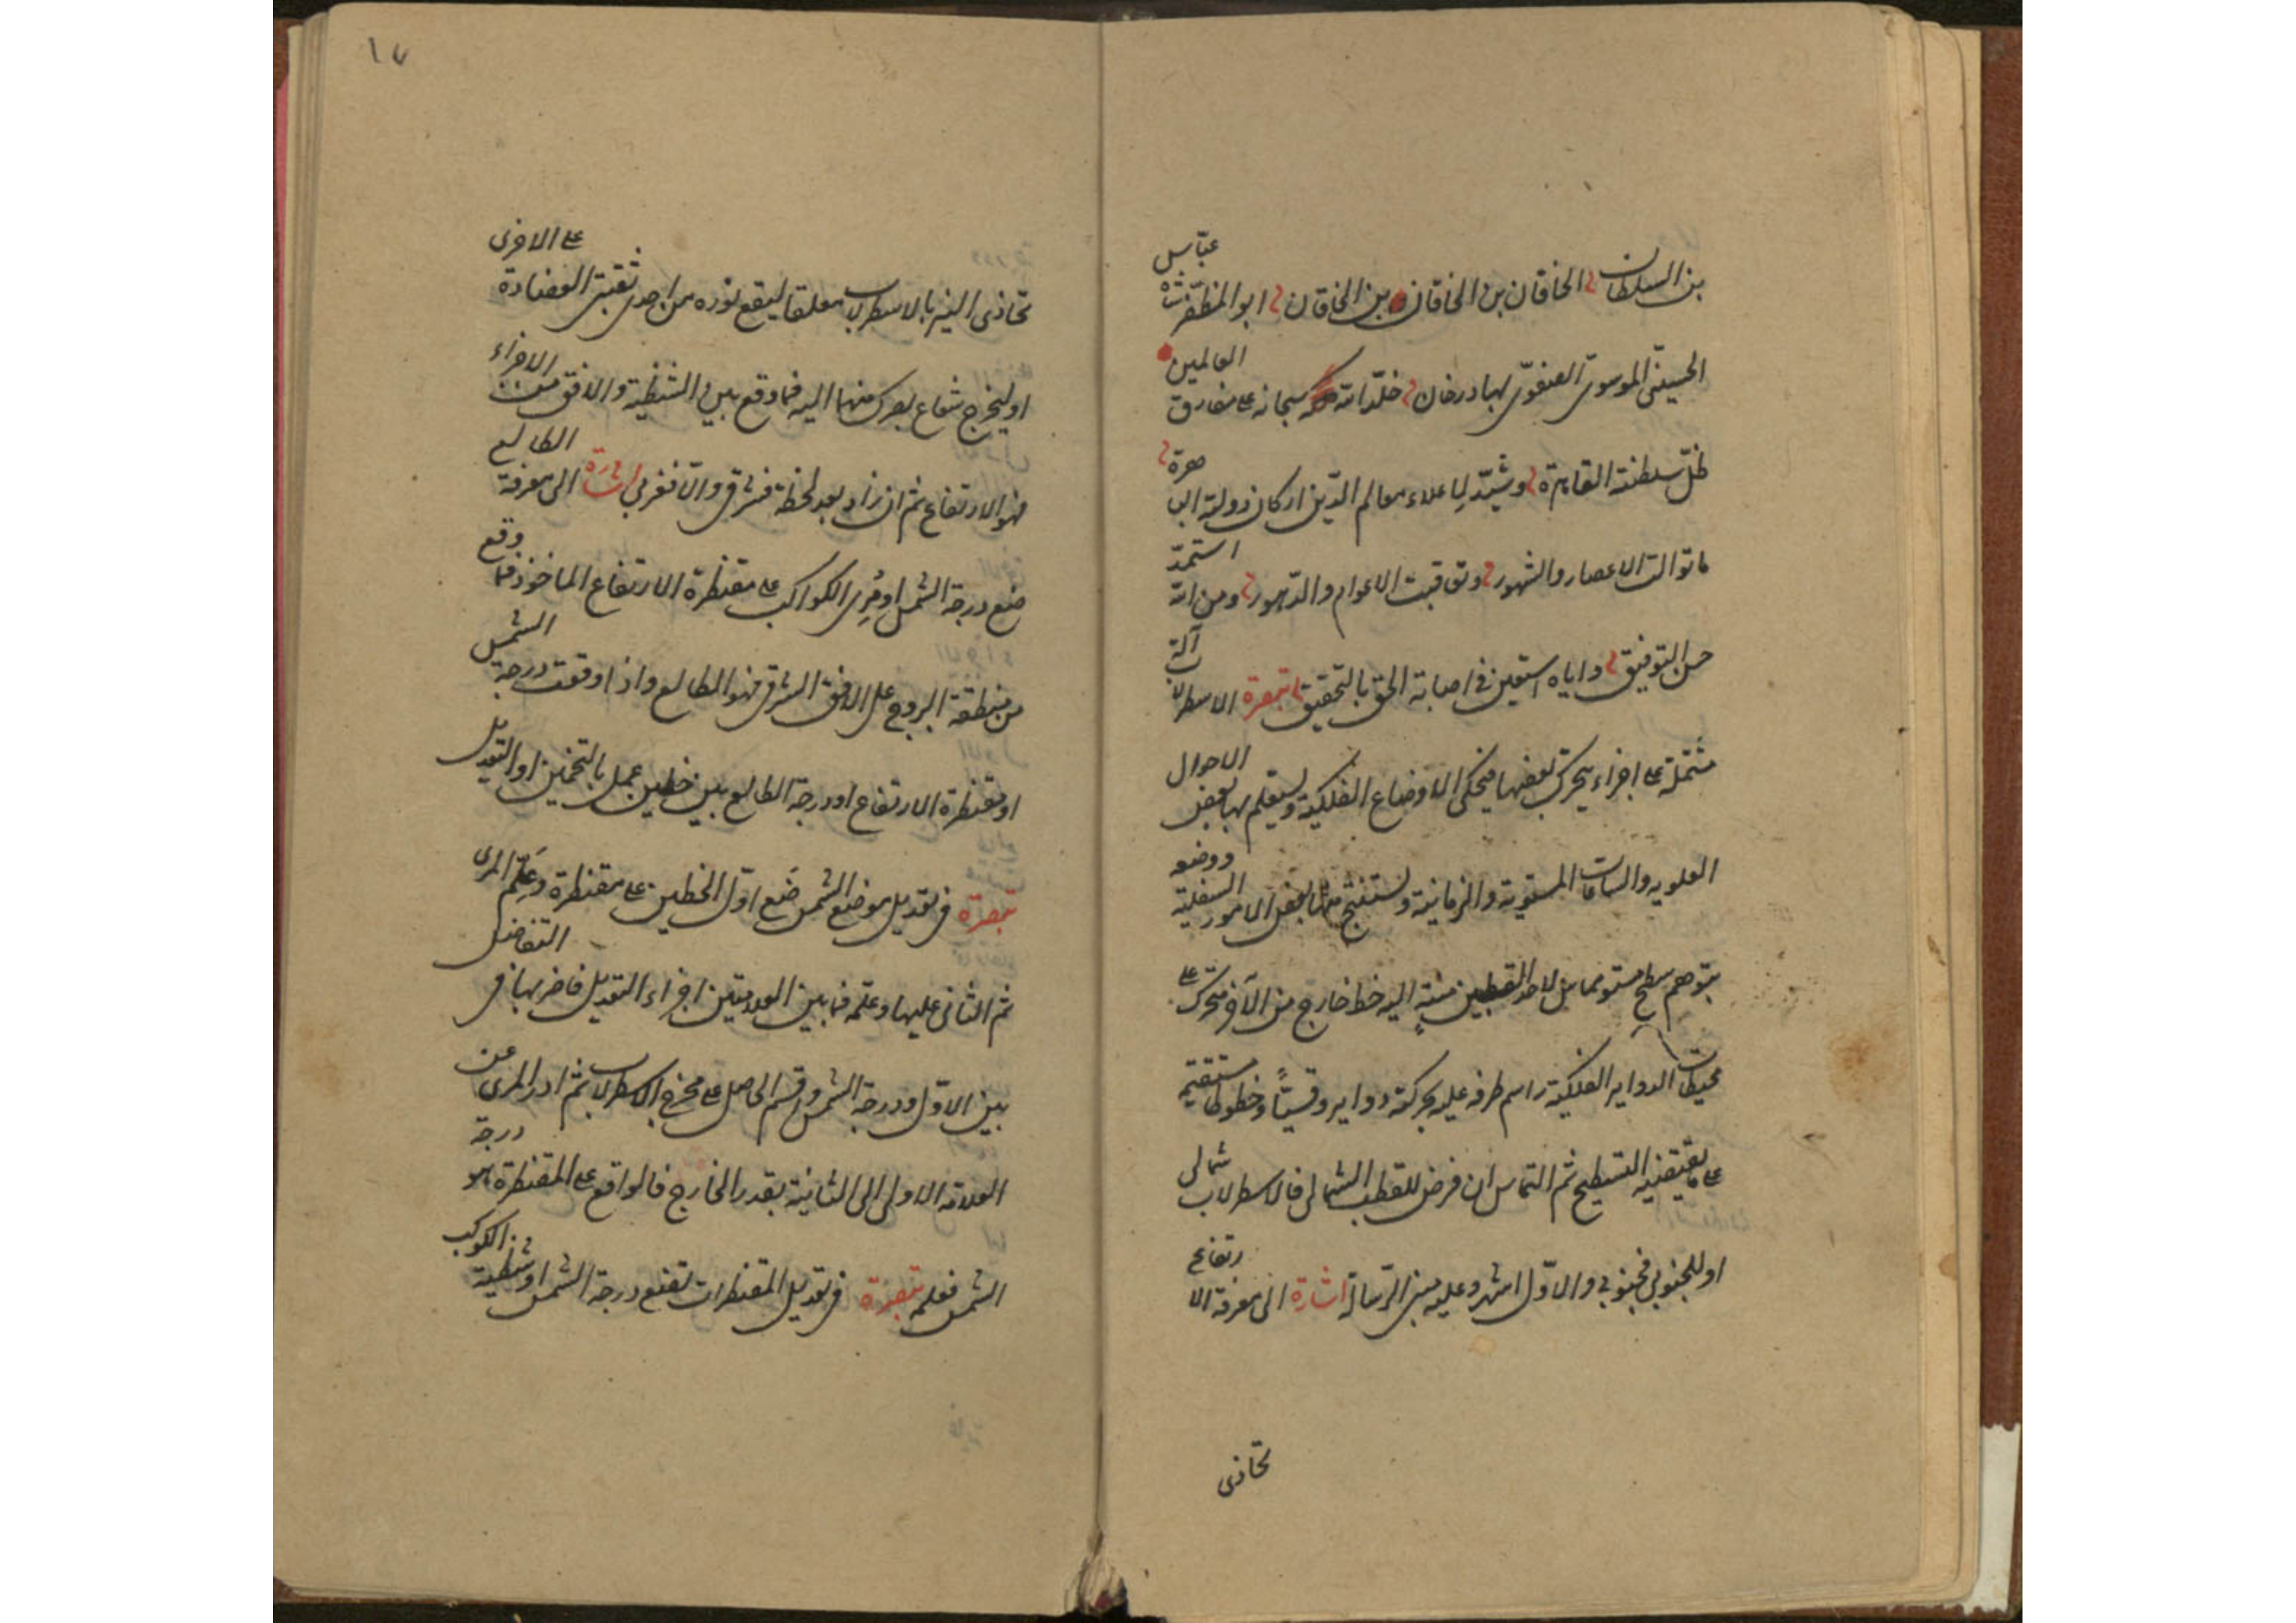 بن السلطان الخاقان بن الخاقان بن الخاقان ابو المظفر شاه عباس
الحسينى الموسوى الصفوى بهادرخان خلد الله سبحانه على مفارق العالمين
ظل سلطنته القاهرة وشيد لاعلاء معالم الدين اركان دولته الباهرة
ما توالت الاعصار والشهور وتعاقبت الاعوام والدهور ومن الله استمد
حسن التوفيق واياه استعين فى اصابة الحق بالتحقيق تبصرة الاسطرلاب آلة
مشتملة على اجزاء يتحرك بعضها فيحكى الاوضاع الفلكية ويستعلم بها بعض الاحوال
العلويه والساعات المستوية والزمانية ويستنتج منها بعض الامور السفلية ووضعه
بتوهم سطح مستو مماس لاحد القطبين منته اليه خط خارج من الآخر متحرك على
محيطات الدواير الفلكية راسم طرفه عليه بحركته دواير وقسيا وخطوطا مستقيمة
على ما يقتضيه التسطيح ثم التماس ان فرض للقطب الشمالى فالاسطرلاب شمالى
او للجنوبى فجنوبى والاول اشهر وعليه مبنى الرسالة اشارة الى معرفة الارتفاع
تحاذى
١٧
تحاذى النير بالاسطرلاب معلقا ليقع نوره من احدى ثقبتى العضادة على الاخرى
او ليخرج شعاع بصرك منهما اليه فما وقع بين الشظية والافق من الاجزاء
فهو الارتفاع ثم ان زاد بعد لحظة فشرقى والا فغربى اشارة الى معرفة الطالع
ضع درجة الشمس او مرى الكواكب على مقنطرة الارتفاع الماخوذ فما وقع
من منطقة البروج على الافق الشرقى فهو الطالع واذا وقعت درجة الشمس
او مقنطرة الارتفاع او درجة الطالع بين خطين عمل بالتخمين او التعديل
تبصرة فى تعديل موضع الشمس ضع اول الخطين على مقنطرة وعلم المرى
ثم الثانى عليها وعلمه فما بين العلامتين اجزاء التعديل فاضربها فى التفاضل
بين الاول ودرجة الشمس واقسم الحاصل على مخرج الاسطرلاب ثم ادر المرى عن
العلامة الاولى الى الثانية بقدر الخارج فالواقع على المقنطرة هو درجة
الشمس فعلمه تبصرة فى تعديل المقنطرات تضع درجة الشمس او شظية الكوكب